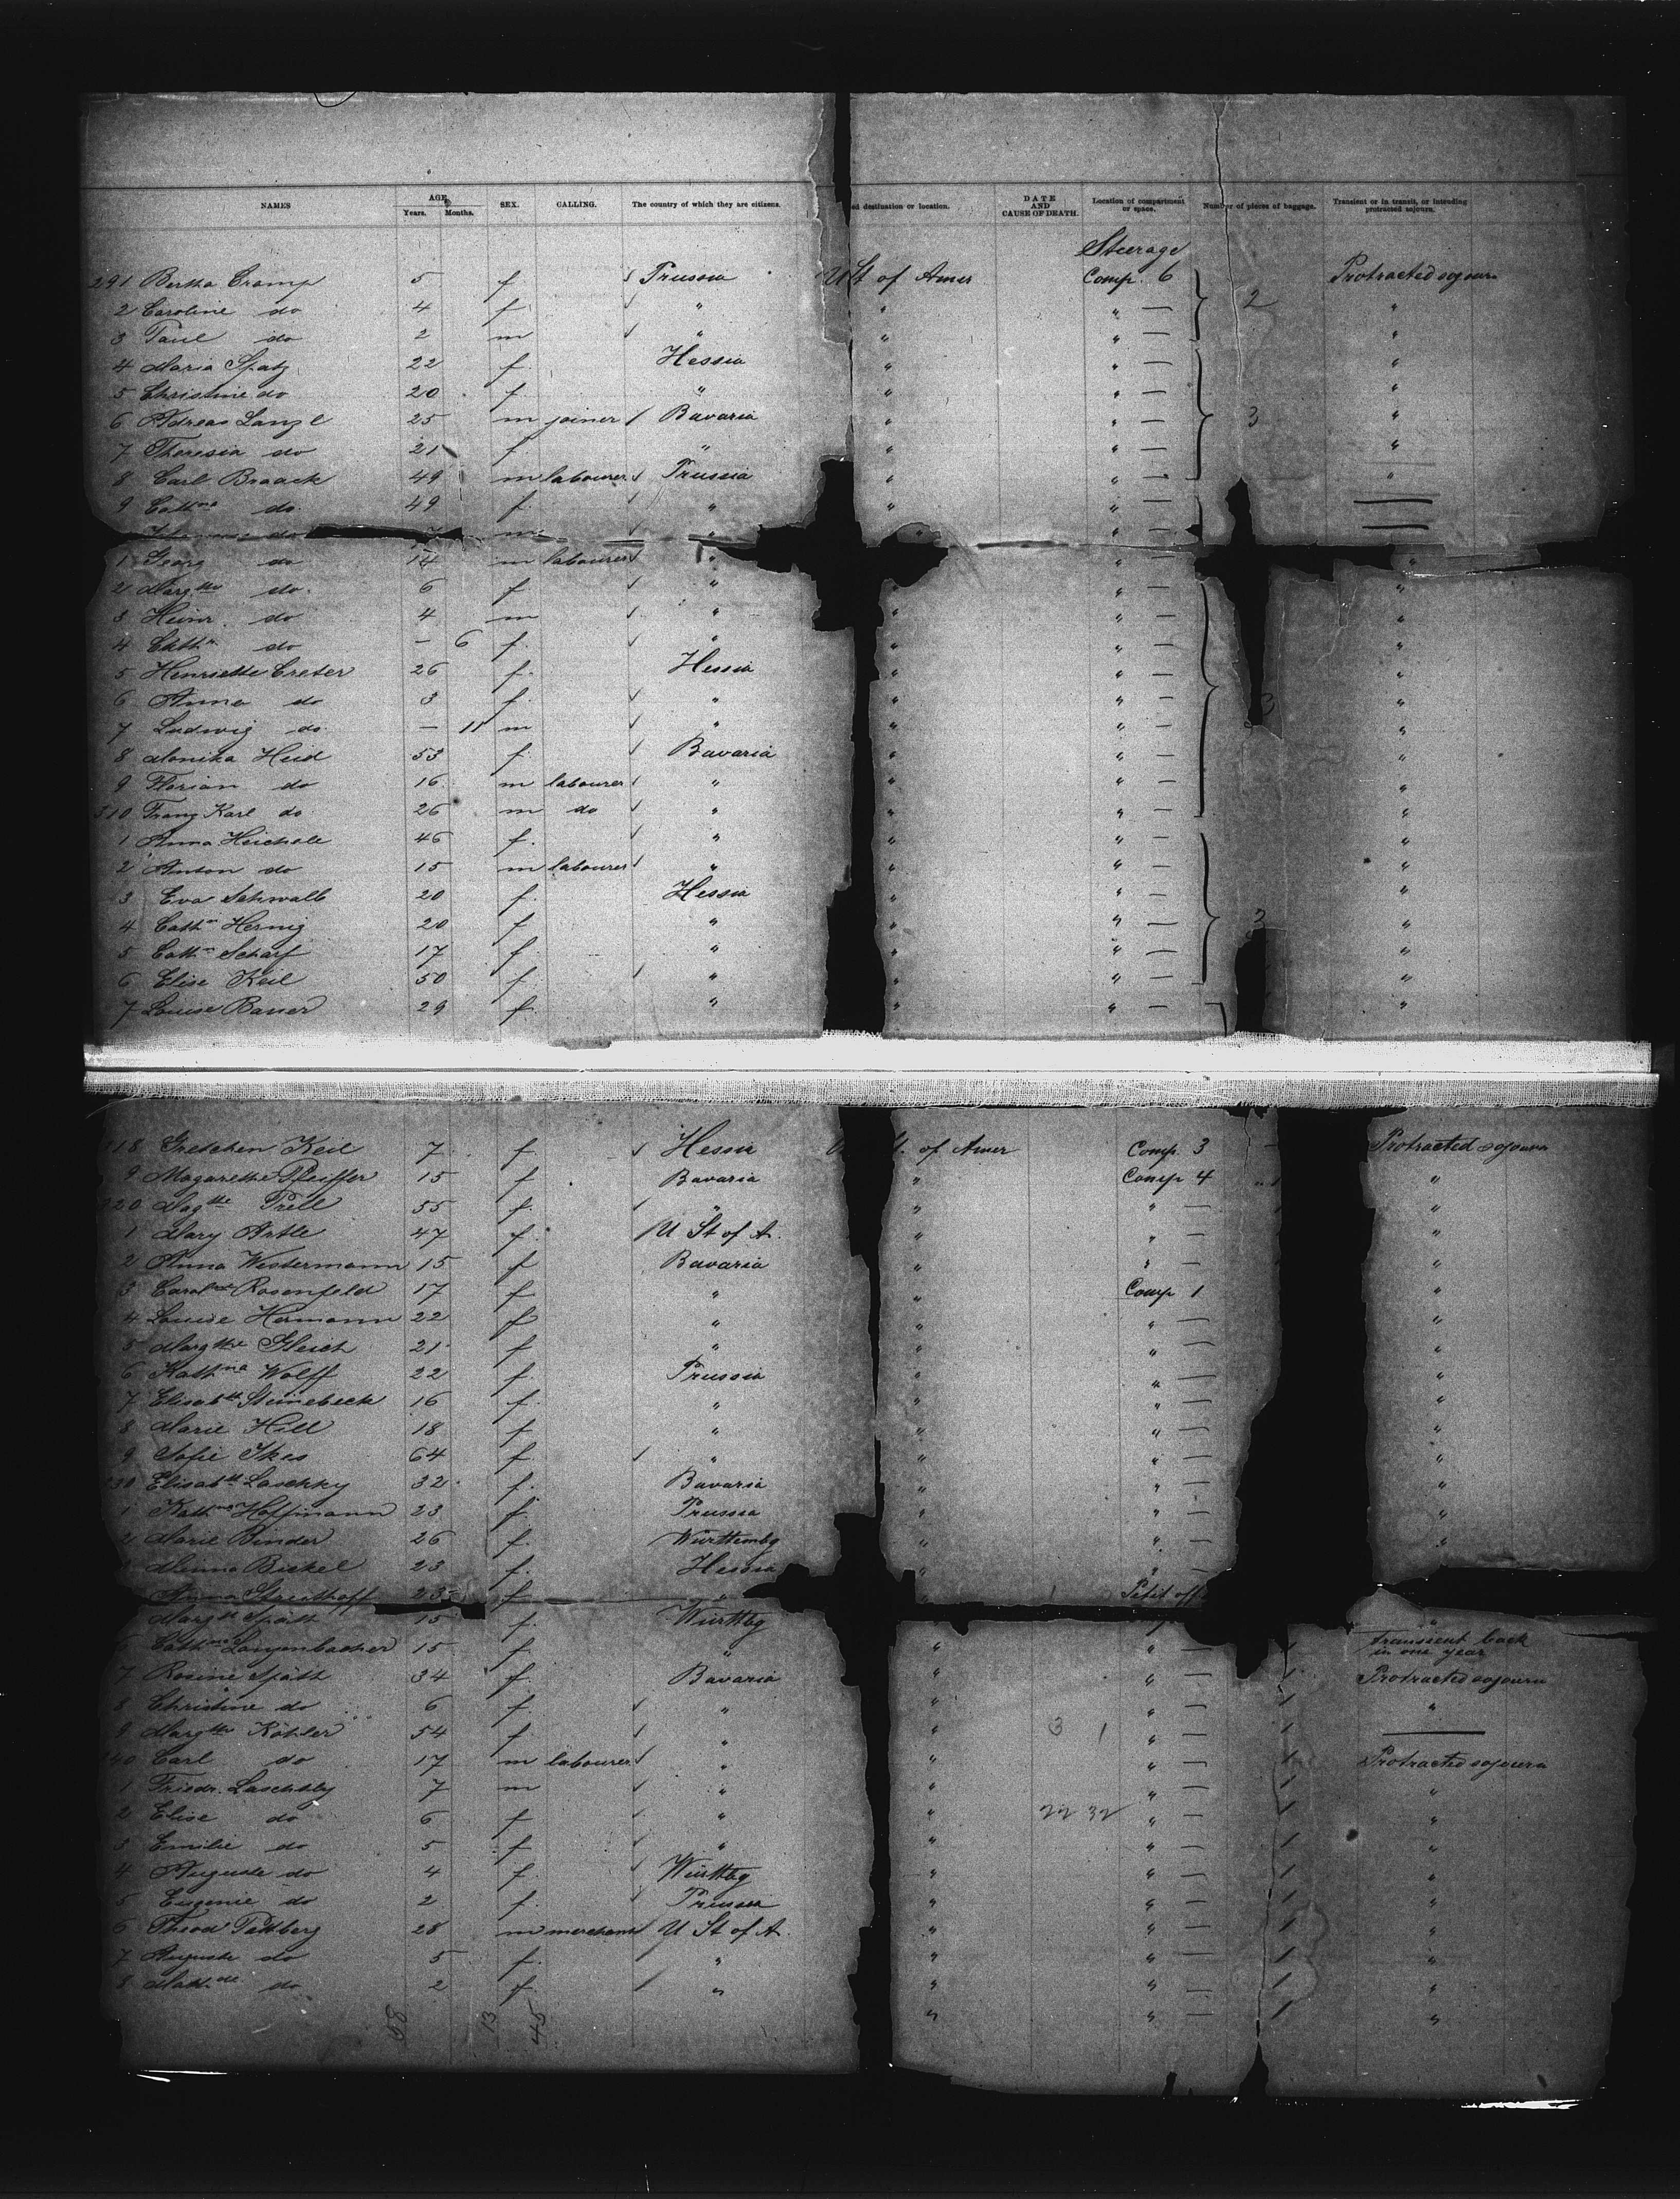 NAMES AGE Years. Months. SEX. CALLING. The country of which they are citizens. ed destination or location. DATE AND CAUSE OF DEATH. Location of compartment or space. Number of pieces of baggage. Transient or in transit, or intending protracted sojourn.
Steerage
291 Bertha Cramp 5 f Prussia U St of Amer Comp. 6 Protracted sojourn
2 Caroline do 4 f " " " — 2 "
3 Paul do 2 m " " " — "
4 Maria Spatz 22 f Hessia " " — "
5 Christine do 20 f " " " — "
6 Andreas Lanzl 25 m joiner Bavaria " " — 3 "
7 Theresia do 21 f " " " — "
8 Carl Braack 49 m labourer Prussia " " — "
9 Cathna do 49 f " " " —
do 7 m " " " —
1 Georg do 14 m labourer " " — "
2 Margthe do 6 f " " " — "
3 Heinr. do 4 m " " " — "
4 Cath do — 6 f " " " — "
5 Henriette Creter 26 f Hessia " " — "
6 Anna do 3 f " " " — 3 "
7 Ludwig do — 11 m " " " — "
8 Monika Heid 53 f Bavaria " " — "
9 Florian do 16 m labourer " " " — "
310 Franz Karl do 26 m do " " " — "
1 Anna Heichele 46 f " " " — "
2 Anton do 15 m labourer " " " — "
3 Eva Schwalb 20 f Hessia " " — "
4 Cath Hernig 20 f " " " — "
5 Cath Scharf 17 f " " " — "
6 Elise Keil 50 f " " " — "
7 Louise Bauer 29 f " " " — "
318 Gretchen Keil 7 f Hessia of Amer Comp. 3 Protracted sojourn
9 Magarethe Pfeiffer 15 f Bavaria " Comp 4 "
320 Magthe Prell 55 f " " " — "
1 Mary Ortle 47 f U St of A. " " — "
2 Anna Westermann 15 f Bavaria " " — "
3 Carolne Rosenfeld 17 f " " Comp 1 "
4 Louise Hermann 22 f " " " — "
5 Margthe Gleich 21 f " " " — "
6 Kathna Wolff 22 f Prussia " " — "
7 Elisabth Steinebeck 16 f " " " — "
8 Marie Hill 18 f " " " — "
9 Sofie Ikes 64 f " " " — "
330 Elisabth Laschky 32 f Bavaria " " — "
1 Kathna Hoffmann 23 f Prussia " " — "
2 Marie Binder 26 f Württembg " " — "
3 Menna Bickel 23 f Hessia " " —
Anna Streithoff 23 f " " Petit off
Margth Späth 15 f Württbg "
6 Cathna Langenbacher 15 f " " " — 1 transient back in one year
7 Rosine Späth 34 f Bavaria " " — 1 Protracted sojourn
8 Christine do 6 f " " " — 1 "
9 Margthe Köhler 54 f " " 3 1 " — 1
340 Carl do 17 m labourer " " " — 1 Protracted sojourn
1 Friedr. Laschky 7 m " " " — 1 "
2 Elise do 6 f " " 22 32 " — 1 "
3 Emilie do 5 f " " " — 1 "
4 Auguste do 4 f Württbg " " — 1 "
5 Eugenie do 2 f Prussia " " — 1 "
6 Theod Pattberg 28 m merchant U St of A " " — 1 "
7 Auguste do 5 f " " " — 1 "
8 do 2 f " " " — 1 "
" " — 1 "
58 13 45